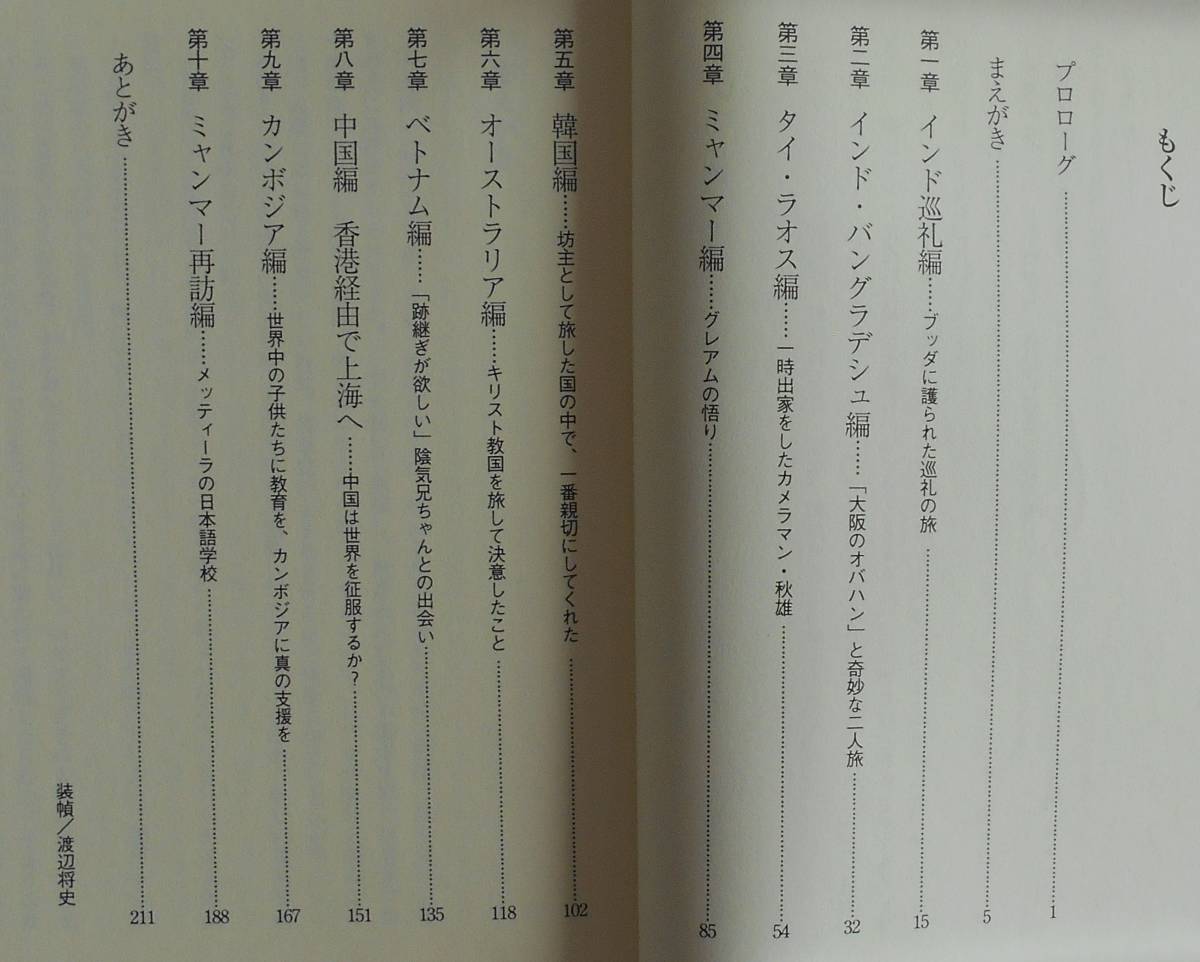 もくじ
プロローグ……………1
まえがき……………5
第一章　インド巡礼編……ブッダに護られた巡礼の旅……………15
第二章　インド・バングラデシュ編……「大阪のオバハン」と奇妙な二人旅……………32
第三章　タイ・ラオス編……一時出家をしたカメラマン・秋雄……………54
第四章　ミャンマー編……グレアムの悟り……………85
第五章　韓国編……坊主として旅した国の中で、一番親切にしてくれた……………102
第六章　オーストラリア編……キリスト教国を旅して決意したこと……………118
第七章　ベトナム編……「跡継ぎが欲しい」陰気兄ちゃんとの出会い……………135
第八章　中国編　香港経由で上海へ……中国は世界を征服するか？……………151
第九章　カンボジア編……世界中の子供たちに教育を、カンボジアに真の支援を……………167
第十章　ミャンマー再訪編……メッティーラの日本語学校……………188
あとがき……………211
装幀／渡辺将史